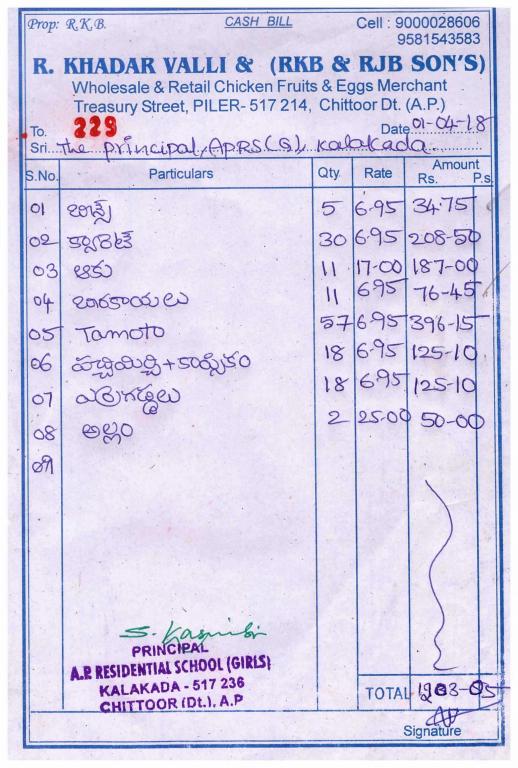 Prop: R.K.B. CASH BILL Cell : 9000028606
9581543583
R. KHADAR VALLI & (RKB & RJB SON'S)
Wholesale & Retail Chicken Fruits & Eggs Merchant
Treasury Street, PILER- 517 214, Chittoor Dt. (A.P.)
To. 229 Date 01-04-18
Sri... the principal, APRS(G), Kalakada
S.No. Particulars Qty. Rate Amount Rs. P.s.
01 బీన్స్ 5 6-95 34-75
02 క్యారెట్ 30 6-95 208-50
03 ఆకు 11 17-00 187-00
04 బీరకాయలు 11 6-95 76-45
05 Tamoto 57 6-95 396-15
06 పచ్చిమిర్చి + కాప్సికం 18 6-95 125-10
07 ఎర్రగడ్డలు 18 6-95 125-10
08 అల్లం 2 25-00 50-00
09
PRINCIPAL
A.P. RESIDENTIAL SCHOOL (GIRLS)
KALAKADA - 517 236
CHITTOOR (Dt.), A.P
TOTAL 1203-05
Signature